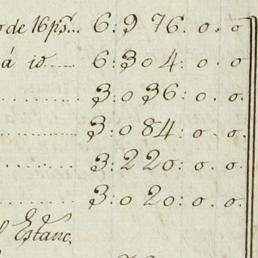 de 16 ps... 6:976:o.o
á io ...... 6:304:o.o.
...... 3:036:o.o.
...... 3:084:o.o.
...... 3:220:o.o.
...... 3:020:o.o.
Estanc.